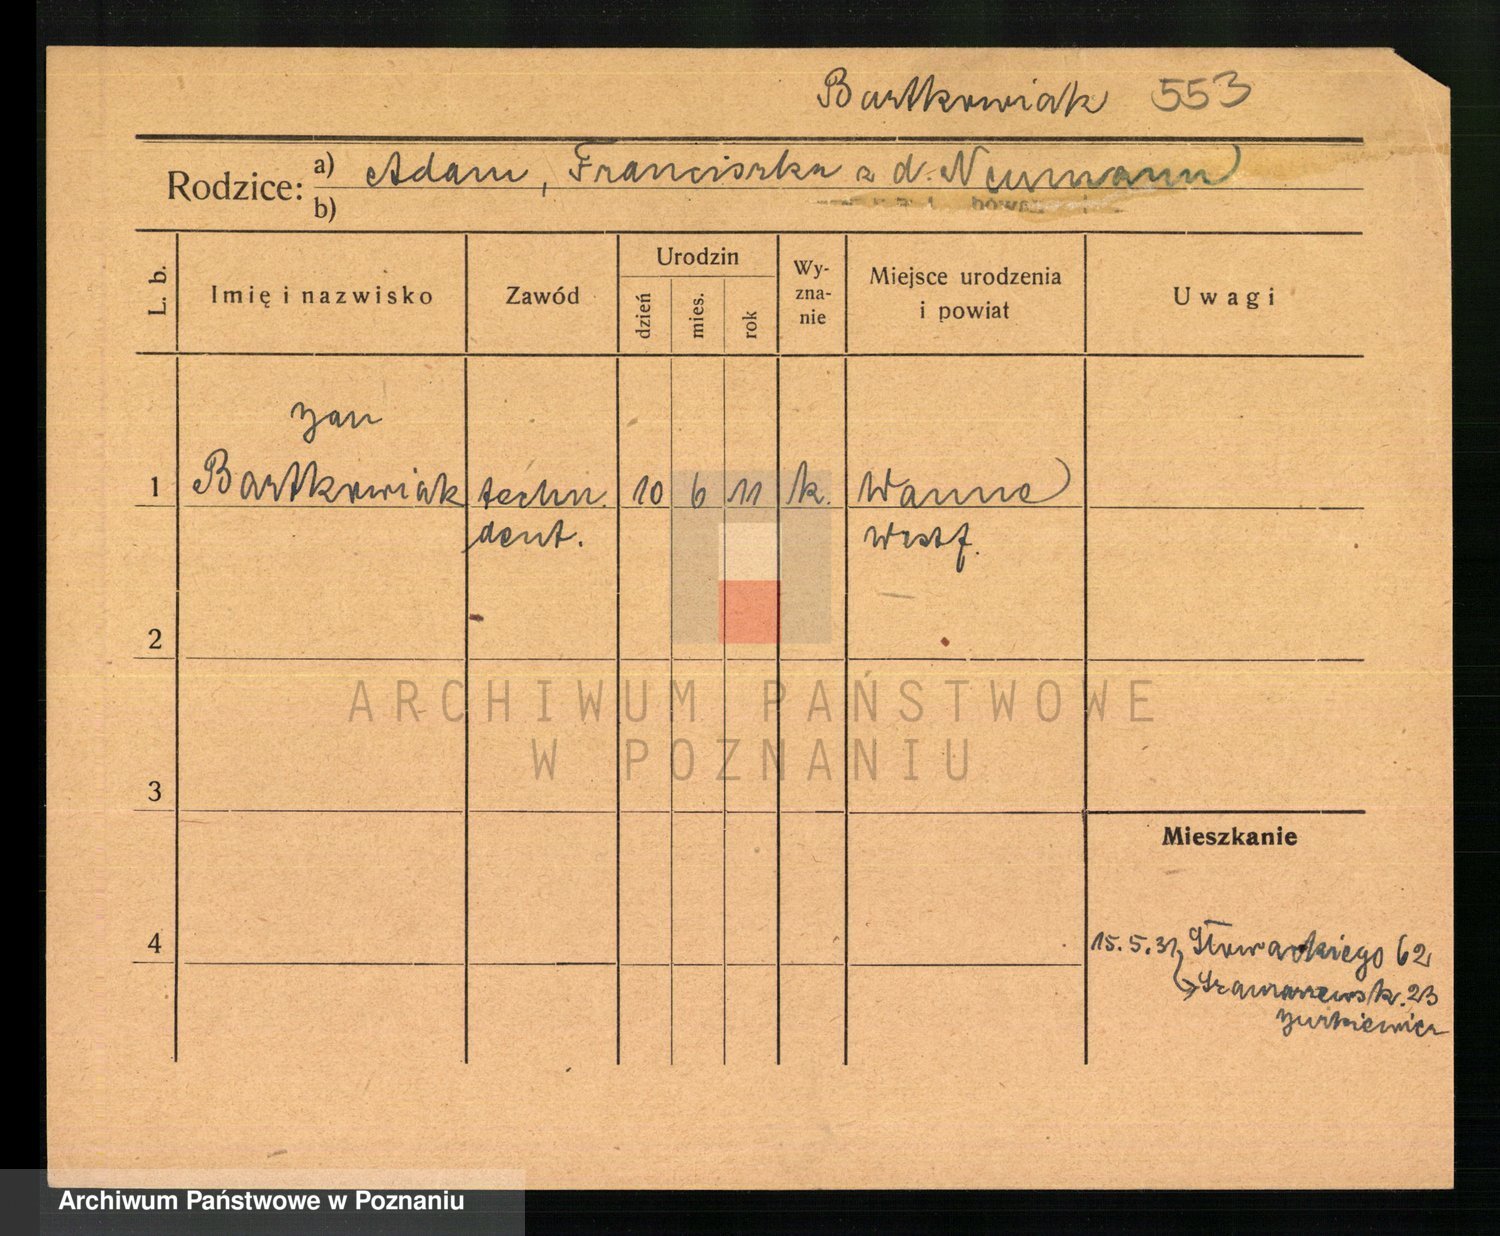 Bartkowiak 553
Rodzice: a) Adam, Franciszka z d. Neumann
b)
L. b.
Imię i nazwisko
Zawód
Urodzin
dzień
mies.
rok
Wy-
zna-
nie
Miejsce urodzenia
i powiat
Uwagi
Jan
1 Bartkowiak techn. 10 6 11 k. Wanne
dent. Westf.
2
3
ARCHIWUM PAŃSTWOWE
W POZNANIU
Mieszkanie
4
15.5.31 Słowackiego 62
23
Jurkiewicz
Archiwum Państwowe w Poznaniu